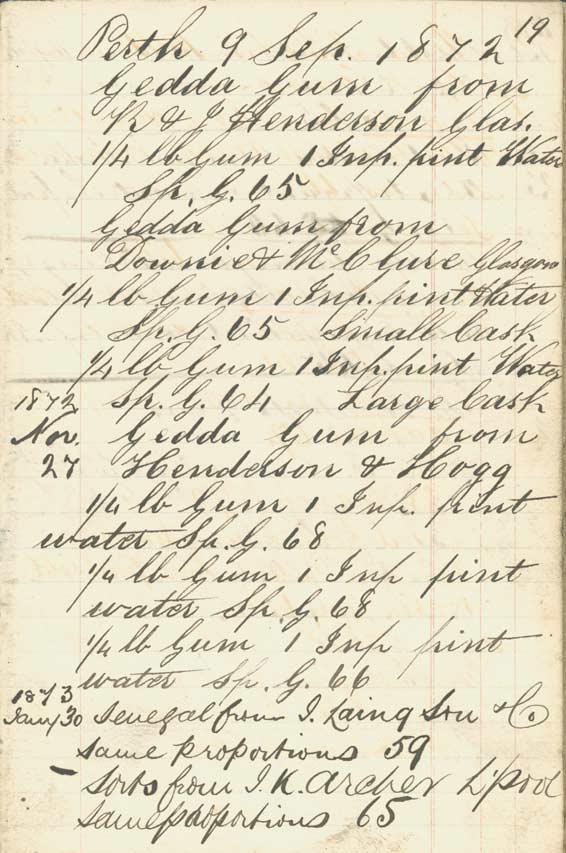 19
Perth 9 Sep. 1872
Gedda Gum from
R & J Henderson Glas.
1/4 lb Gum 1 Inp. pint Water
Sp. G. 65
Gedda Gum from
Downie & McClure Glasgow
1/4 lb Gum 1 Inp. pint Water
Sp. G. 65 Small Cask
1/4 lb Gum 1 Inp. pint Water
1872 Sp. G. 64 Large Cask
Nov. Gedda Gum from
27 Henderson & Hogg
1/4 lb Gum 1 Inp. pint
water Sp. G. 68
1/4 lb Gum 1 Inp pint
water Sp. G. 68
1/4 lb Gum 1 Inp pint
water Sp. G. 66
1873
Jany 30 Senegal from J. Laing Son & Co
same proportions 59
– Sorts from J. K. Archer L'pool
same proportions 65